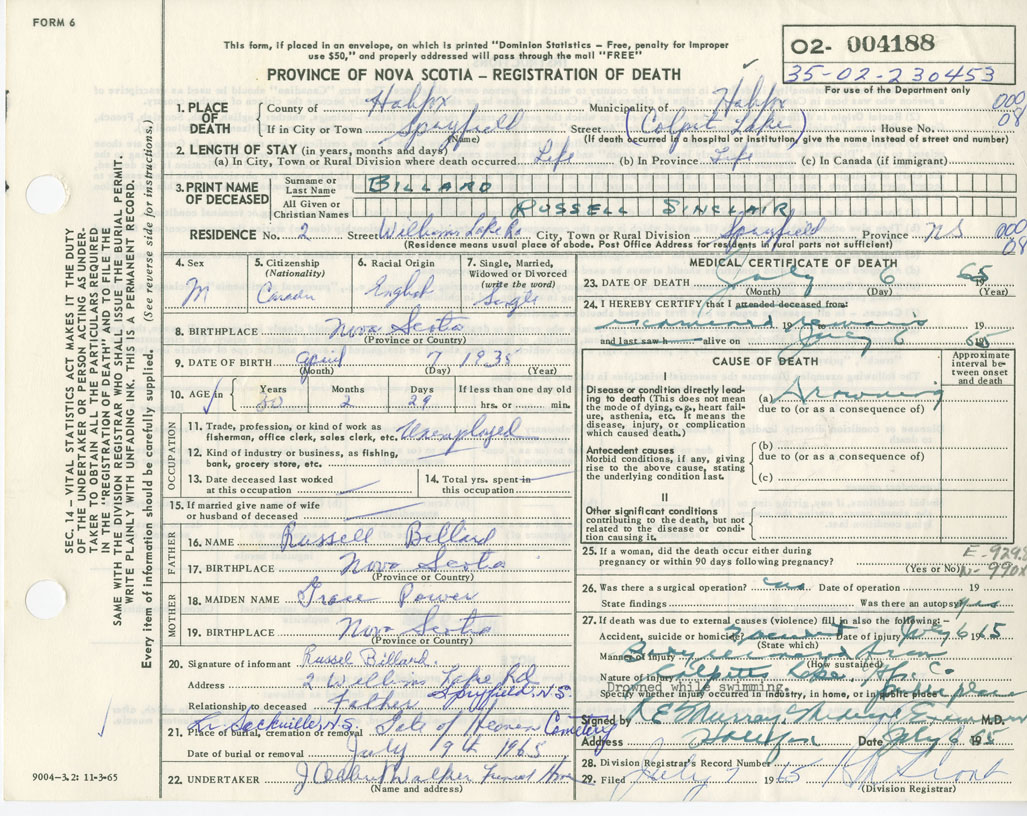 FORM 6
This form, if placed in an envelope, on which is printed "Dominion Statistics – Free, penalty for improper
use $50," and properly addressed will pass through the mail "FREE"
PROVINCE OF NOVA SCOTIA – REGISTRATION OF DEATH
O2- 004188
35-02-230453
For use of the Department only
1. PLACE OF DEATH
County of Halifax Municipality of Halifax
000
08
If in City or Town Spryfield Street (Colpit Lake) House No.
(Name) (If death occurred in a hospital or institution, give the name instead of street and number)
2. LENGTH OF STAY (in years, months and days)
(a) In City, Town or Rural Division where death occurred Life (b) In Province Life (c) In Canada (if immigrant)
3. PRINT NAME OF DECEASED
Surname or Last Name BILLARD
All Given or Christian Names RUSSELL SINCLAIR
RESIDENCE No. 2 Street Williams Lake Rd City, Town or Rural Division Spryfield Province NS
000
08
(Residence means usual place of abode. Post Office Address for residents in rural parts not sufficient)
4. Sex M
5. Citizenship (Nationality) Canada
6. Racial Origin English
7. Single, Married, Widowed or Divorced (write the word) Single
8. BIRTHPLACE Nova Scotia
(Province or Country)
9. DATE OF BIRTH April 7 1935
(Month) (Day) (Year)
10. AGE in Years 30 Months 2 Days 29 If less than one day old hrs. or min.
OCCUPATION
11. Trade, profession, or kind of work as fisherman, office clerk, sales clerk, etc. Unemployed
12. Kind of industry or business, as fishing, bank, grocery store, etc.
13. Date deceased last worked at this occupation
14. Total yrs. spent in this occupation
15. If married give name of wife or husband of deceased
FATHER
16. NAME Russell Billard
17. BIRTHPLACE Nova Scotia
(Province or Country)
MOTHER
18. MAIDEN NAME Grace Power
19. BIRTHPLACE Nova Scotia
(Province or Country)
20. Signature of informant Russel Billard.
Address 2 Williams Lake Rd
Spryfield, N.S.
Relationship to deceased Father
Sackville, N.S.
21. Place of burial, cremation or removal Gate of Heaven Cemetery
Date of burial or removal July 9th 1965
22. UNDERTAKER J Walker Funeral Home
(Name and address)
MEDICAL CERTIFICATE OF DEATH
23. DATE OF DEATH July 6 65
(Month) (Day) (Year)
24. I HEREBY CERTIFY that I attended deceased from:
examined remains 19 to 19
and last saw h alive on July 6 65
CAUSE OF DEATH
Approximate interval between onset and death
I
Disease or condition directly leading to death (This does not mean the mode of dying, e.g., heart failure, asthenia, etc. It means the disease, injury, or complication which caused death.)
(a) Drowning
due to (or as a consequence of)
Antecedent causes
Morbid conditions, if any, giving rise to the above cause, stating the underlying condition last.
(b)
due to (or as a consequence of)
(c)
II
Other significant conditions
contributing to the death, but not related to the disease or condition causing it.
25. If a woman, did the death occur either during pregnancy or within 90 days following pregnancy?
(Yes or No)
E-929.8
N-990X
26. Was there a surgical operation? no Date of operation 19
State findings Was there an autopsy yes
27. If death was due to external causes (violence) fill in also the following:–
Accident, suicide or homicide accident Date of injury July 6 1965
(State which)
Manner of injury Body recovered from
(How sustained)
Nature of injury Colpitts Lake. Hfx. Co
Drowned while swimming.
Specify whether injury occurred in industry, in home, or in public place
Signed by R E Murray. Medical Examiner M.D.
Address Halifax Date July 6 65
28. Division Registrar's Record Number
29. Filed July 7 1965
(Division Registrar)
SEC. 14 – VITAL STATISTICS ACT MAKES IT THE DUTY
OF THE UNDERTAKER OR PERSON ACTING AS UNDER-
TAKER TO OBTAIN ALL THE PARTICULARS REQUIRED
IN THE "REGISTRATION OF DEATH" AND TO FILE THE
SAME WITH THE DIVISION REGISTRAR WHO SHALL ISSUE THE BURIAL PERMIT.
WRITE PLAINLY WITH UNFADING INK. THIS IS A PERMANENT RECORD.
Every item of information should be carefully supplied. (See reverse side for instructions.)
9004-3.2: 11-3-65